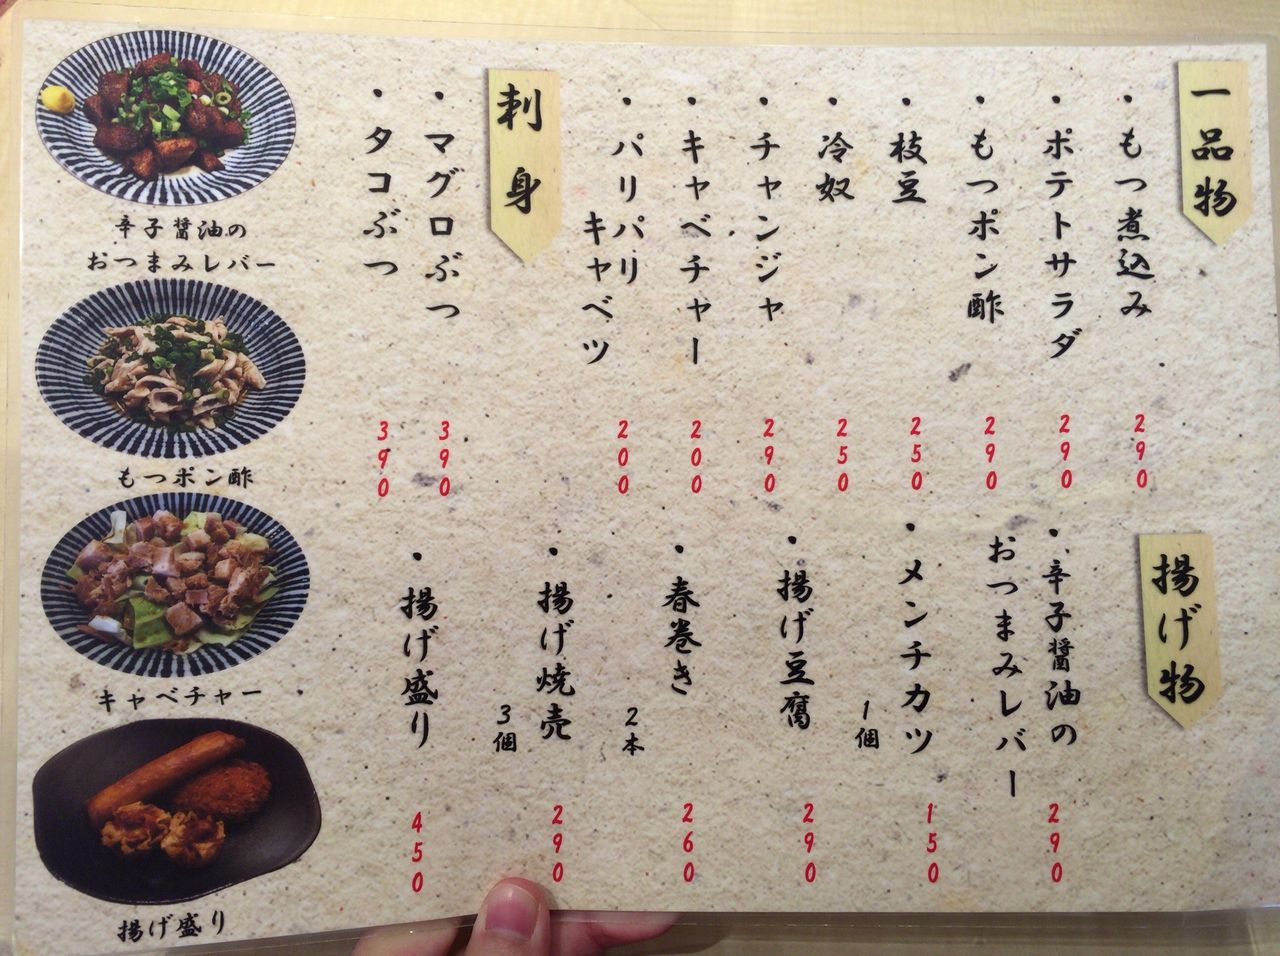 一品物
・もつ煮込み
290
・ポテトサラダ
290
・もつポン酢
290
・枝豆
250
・冷奴
250
・チャンジャ
290
・キャベチャー
200
・パリパリ
キャベツ
200
刺身
・マグロぶつ
390
・タコぶつ
390
揚げ物
・辛子醤油の
おつまみレバー
290
・メンチカツ
1個
150
・揚げ豆腐
290
・春巻き
2本
260
・揚げ焼売
3個
290
・揚げ盛り
450
辛子醤油の
おつまみレバー
もつポン酢
キャベチャー
揚げ盛り